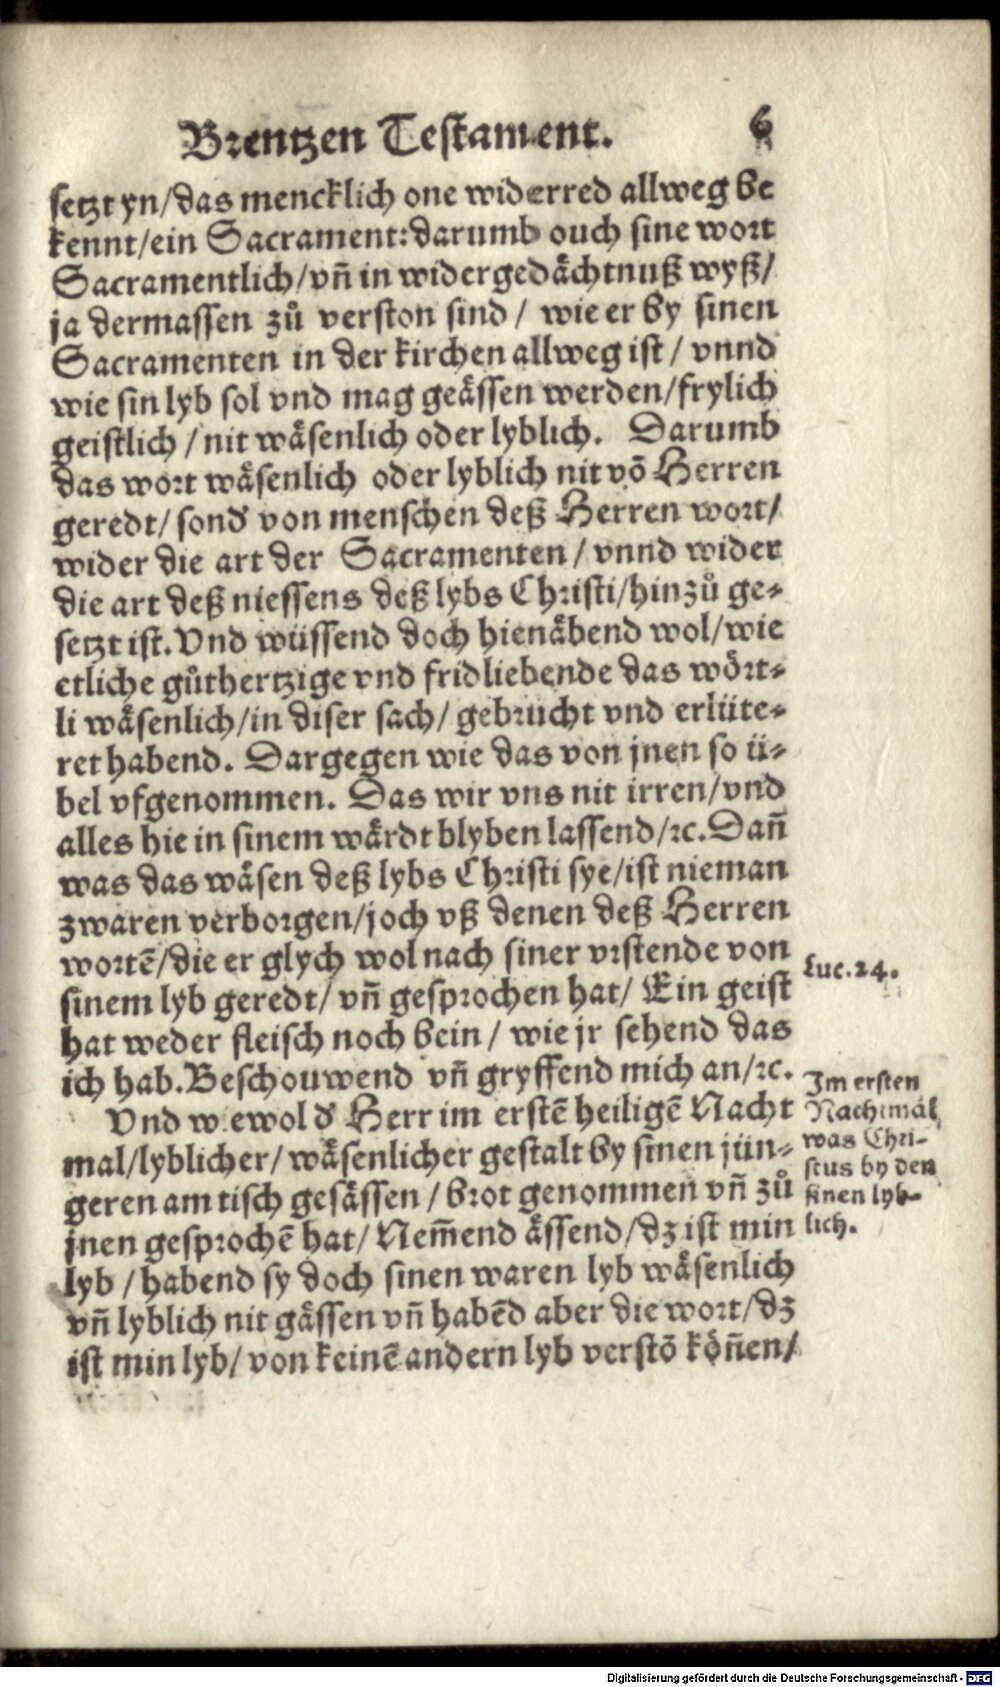 Brentzen Testament. 6
setzt yn/das mencklich one widerred allweg be
kennt/ein Sacrament: darumb ouch sine wort
Sacramentlich/vn̄ in widergedaͤchtnuß wyß/
ja dermassen zuͦ verston sind / wie er by sinen
Sacramenten in der kirchen allweg ist / vnnd
wie sin lyb sol vnd mag geaͤssen werden/frylich
geistlich / nit waͤsenlich oder lyblich. Darumb
das wort waͤsenlich oder lyblich nit vō Herren
geredt/ sond' von menschen deß Herren wort/
wider die art der Sacramenten / vnnd wider
die art deß niessens deß lybs Christi/hinzuͦ ge-
setzt ist. Vnd wüssend doch hienaͤbend wol/wie
etliche guͦthertzige vnd fridliebende das woͤrt-
li waͤsenlich/in diser sach/ gebrucht vnd erlüte-
ret habend. Dargegen wie das von jnen so ü-
bel vfgenommen. Das wir vns nit irren/vnd
alles hie in sinem waͤrdt blyben lassend/ꝛc. Dan̄
was das waͤsen deß lybs Christi sye/ist nieman
zwaren verborgen/joch vß denen deß Herren
wortē/die er glych wol nach siner vrstende von
sinem lyb geredt/ vn̄ gesprochen hat/ Ein geist
hat weder fleisch noch bein / wie jr sehend das
ich hab. Beschouwend vn̄ gryffend mich an/ꝛc.
Vnd wiewol d' Herr im erstē heiligē Nacht
mal/lyblicher/ waͤsenlicher gestalt by sinen jün-
geren am tisch gesaͤssen / brot genommen vn̄ zuͦ
jnen gesprochē hat/ Nem̄end aͤssend/dz ist min
lyb / habend sy doch sinen waren lyb waͤsenlich
vn̄ lyblich nit gaͤssen vn̄ habēd aber die wort/dz
ist min lyb/ von keinē andern lyb verstō koͤn̄en/
Luc. 24.
Im ersten
Nachtmal
was Chri-
stus by den
sinen lyb-
lich.
Digitalisierung gefördert durch die Deutsche Forschungsgemeinschaft - DFG